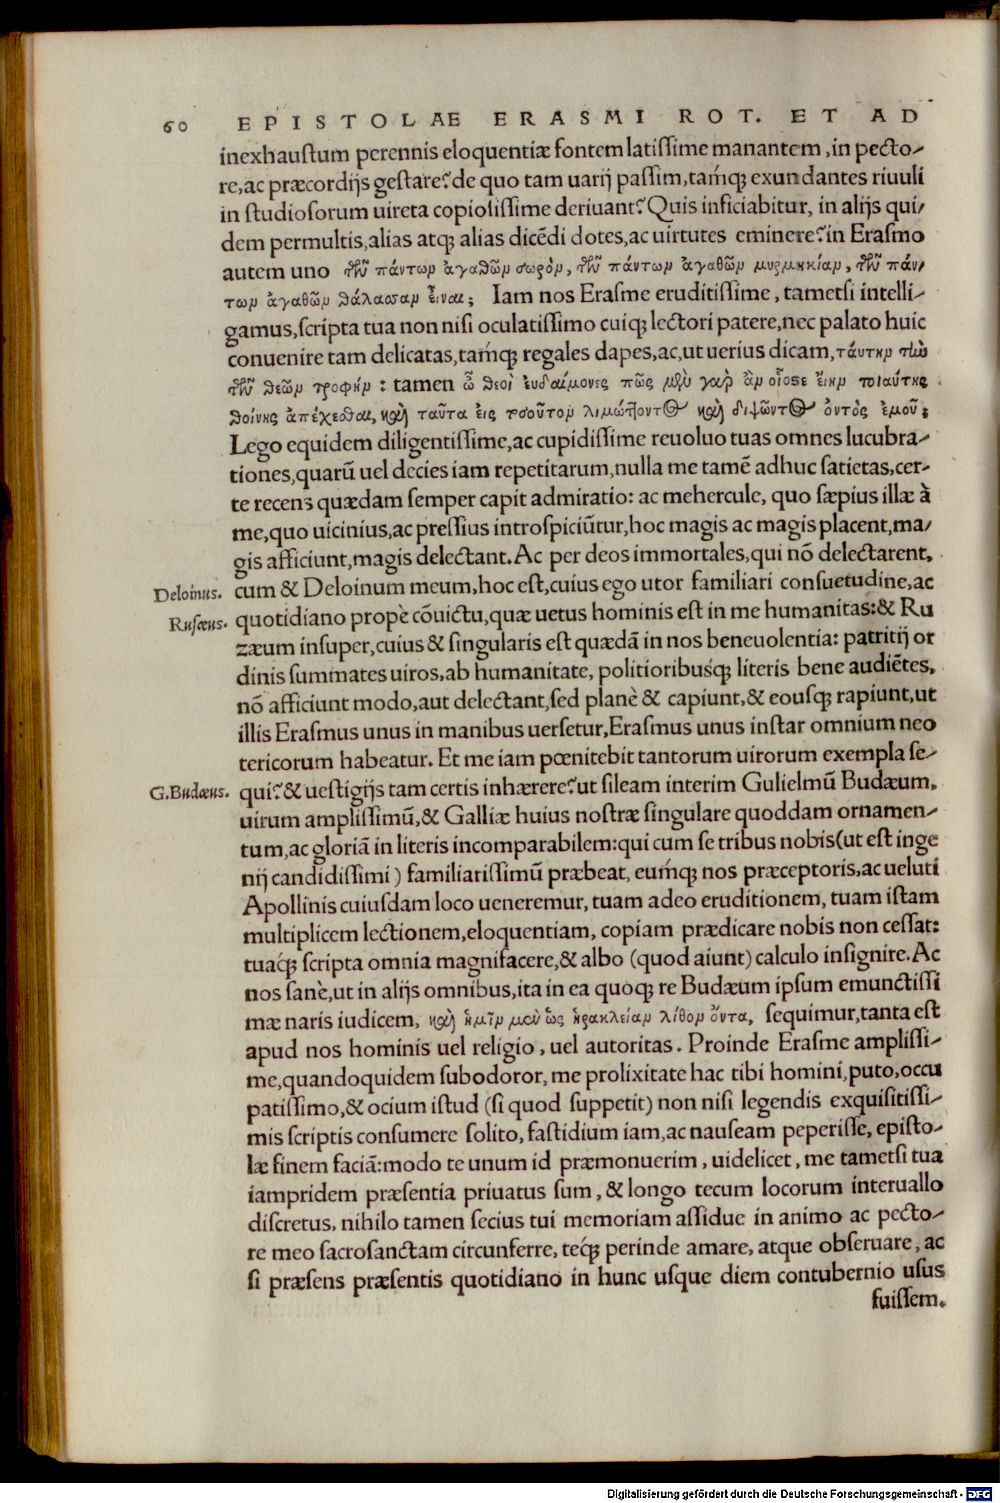 60 EPISTOLAE ERASMI ROT. ET AD
inexhaustum perennis eloquentiæ fontem latissime manantem, in pecto-
re, ac præcordijs gestare? de quo tam uarij passim, tamq; exundantes riuuli
in studiosorum uireta copiosissime deriuant? Quis inficiabitur, in alijs qui/
dem permultis, alias atq; alias dicēdi dotes, ac uirtutes eminere? in Erasmo
autem uno τῶν πάντων ἀγαθῶν σωρὸν, τῶν πάντων ἀγαθῶν μυρμηκίαν, τῶν πάν/
των ἀγαθῶν θάλασσαν εἶναι; Iam nos Erasme eruditissime, tametsi intelli-
gamus, scripta tua non nisi oculatissimo cuiq; lectori patere, nec palato huic
conuenire tam delicatas, tamq; regales dapes, ac, ut uerius dicam, ταύτην τὴν
τῶν θεῶν τροφήν: tamen ὦ θεοὶ ἐυδαίμονες πῶς μὲν γαρ ἂν οἷοσε ἔιην τοιαύτης
θοίνης ἀπέχεσθαι, καὶ ταῦτα ἐις τοσοῦτον λιμώττοντος καὶ διψῶντος ὄντὸς ἐμοῦ;
Lego equidem diligentissime, ac cupidissime reuoluo tuas omnes lucubra-
tiones, quarū uel decies iam repetitarum, nulla me tamē adhuc satietas, cer-
te recens quædam semper capit admiratio: ac mehercule, quo sæpius illæ à
me, quo uicinius, ac pressius introspiciūtur, hoc magis ac magis placent, ma/
gis afficiunt, magis delectant. Ac per deos immortales, qui nō delectarent,
Deloinus. cum & Deloinum meum, hoc est, cuius ego utor familiari consuetudine, ac
Rusæus. quotidiano propè cōuictu, quæ uetus hominis est in me humanitas: & Ru
zæum insuper, cuius & singularis est quædā in nos beneuolentia: patritij or
dinis summates uiros, ab humanitate, politioribusq; literis bene audiētes,
nō afficiunt modo, aut delectant, sed planè & capiunt, & eousq; rapiunt, ut
illis Erasmus unus in manibus uersetur, Erasmus unus instar omnium neo
tericorum habeatur. Et me iam pœnitebit tantorum uirorum exempla se-
G. Budæus. qui? & uestigijs tam certis inhærere? ut sileam interim Gulielmū Budæum,
uirum amplissimū, & Galliæ huius nostræ singulare quoddam ornamen-
tum, ac gloriā in literis incomparabilem: qui cum se tribus nobis (ut est inge
nij candidissimi) familiarissimū præbeat, eumq; nos præceptoris, ac ueluti
Apollinis cuiusdam loco ueneremur, tuam adeo eruditionem, tuam istam
multiplicem lectionem, eloquentiam, copiam prædicare nobis non cessat:
tuaq; scripta omnia magnifacere, & albo (quod aiunt) calculo insignire. Ac
nos sanè, ut in alijs omnibus, ita in ea quoq; re Budæum ipsum emunctissi
mæ naris iudicem, καὶ ἡμῖν μὲν ὡς ἡρακλείαν λίθον ὄντα, sequimur, tanta est
apud nos hominis uel religio, uel autoritas. Proinde Erasme amplissi-
me, quandoquidem subodoror, me prolixitate hac tibi homini, puto, occu
patissimo, & ocium istud (si quod suppetit) non nisi legendis exquisitissi-
mis scriptis consumere solito, fastidium iam, ac nauseam peperisse, episto-
læ finem faciā: modo te unum id præmonuerim, uidelicet, me tametsi tua
iampridem præsentia priuatus sum, & longo tecum locorum interuallo
discretus, nihilo tamen secius tui memoriam assidue in animo ac pecto-
re meo sacrosanctam circunferre, teq; perinde amare, atque obseruare, ac
si præsens præsentis quotidiano in hunc usque diem contubernio usus
fuissem.
Digitalisierung gefördert durch die Deutsche Forschungsgemeinschaft - DFG